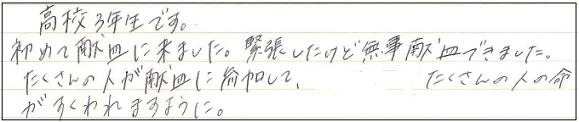 高校3年生です。
初めて献血に来ました。緊張したけど無事献血できました。
たくさんの人が献血に参加して、 たくさんの人の命
がすくわれますように。